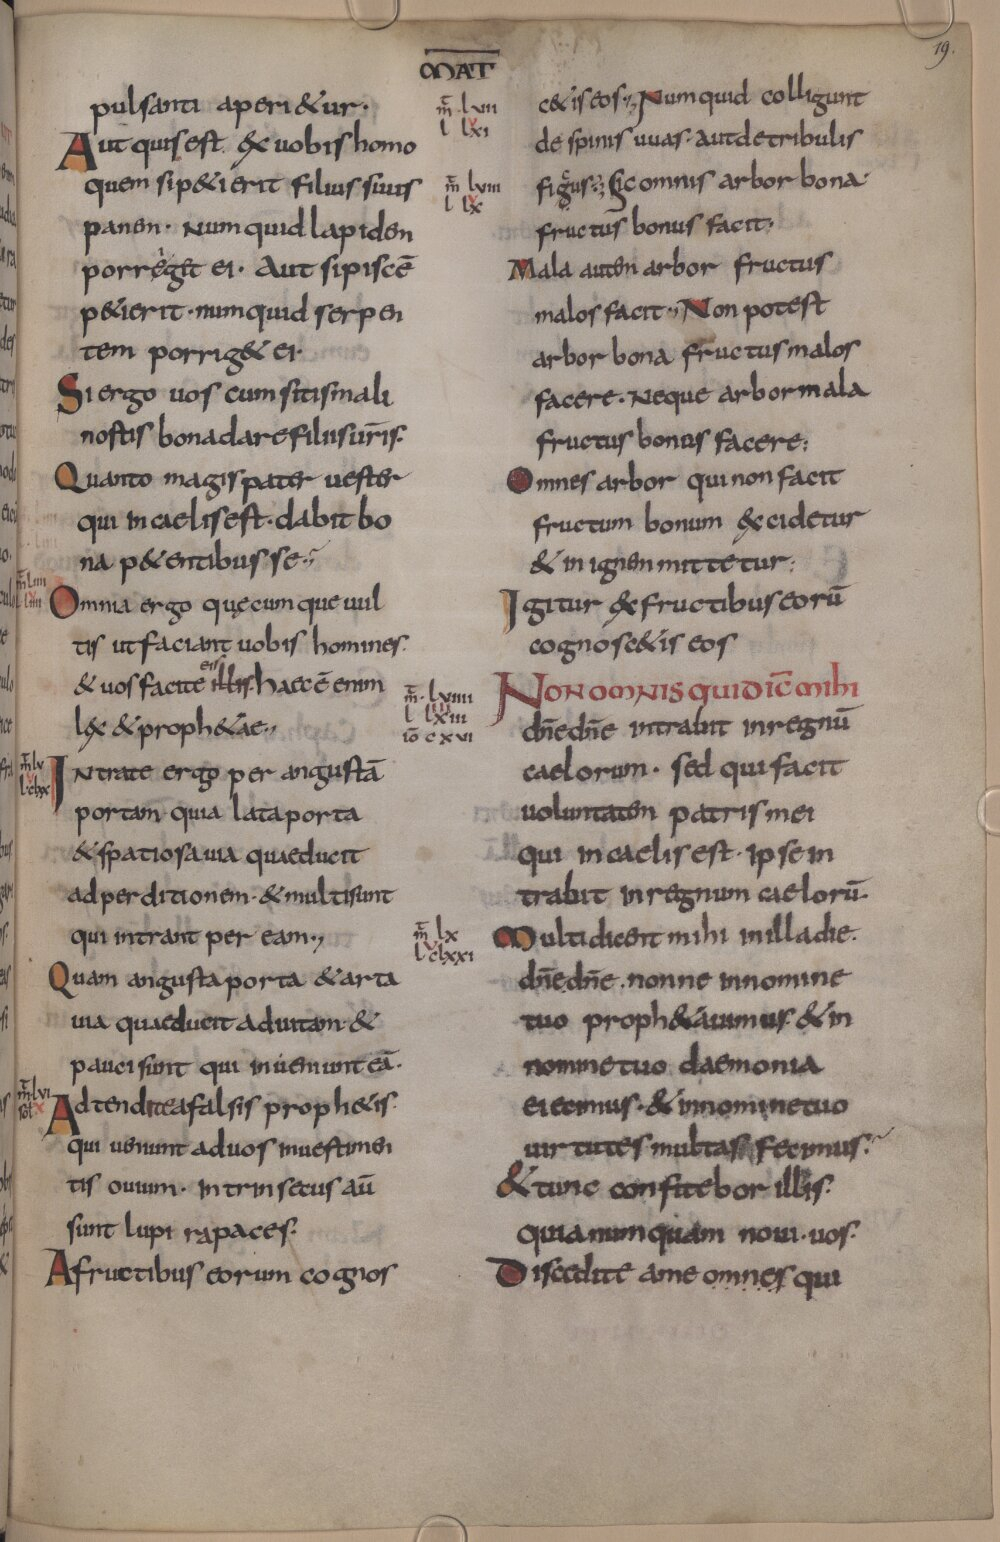 19.
MAT
pulsanti aperi&ur.
Aut quis est ex uobis homo
quem si p&ierit filius suus
panen. Numquid lapiden
porreget ei. Aut si piscē
p&ierit. numquid serpen
tem porrig& ei.
Si ergo uos cum sitis mali
nostis bona dare filiis ūris.
Quanto magis pater uester
qui in caelis est. dabit bo
na p&entibus se.,
m̄ liiii
l liiii
Omnia ergo quęcumque uul
tis ut faciant uobis homines.
& uos facite eis illis. haec ē enim
lex & proph&ae.,
m̄ lv
Intrate ergo per angustā
portam quia lata porta
& spatiosa uia quae ducit
ad perditionem. & multi sunt
qui intrant per eam.,
Quam angusta porta & arta
uia quae ducit ad uitam. &
pauci sunt qui inueniunt eā.
m̄ lvi
sol x
Adtendite a falsis proph&is.
qui ueniunt ad uos in uestimen
tis ouium. intrinsecus aū
sunt lupi rapaces.
A fructibus eorum cognos
m̄ lvii
l lxi
c&is eos., Numquid colligunt
de spinis uuas. aut de tribulis
m̄ lviii
l lx
figus., Sic omnis arbor bona.
fructus bonus facit.
Mala auten arbor fructus
malos facit., Non potest
arbor bona fructus malos
facere. Neque arbor mala
fructus bonus facere.
Omnes arbor qui non facit
fructum bonum excidetur
& in ignen mittetur.
Igitur ex fructibus eorū
cognosc&is eos
m̄ lviiii
l lxiii
iō cxvi
Non omnis qui dic̄ mihi
dn̄e dn̄e intrabit in regnū
caelorum. sed qui facit
uoluntaten patris mei
qui in caelis est. ipse in
trabit in regnum caelorū.
m̄ lx
l clxxi
Multi dicent mihi in illa die.
dn̄e dn̄e. nonne in nomine
tuo proph&auimus. & in
nomine tuo daemonia
eiecimus. & in nomine tuo
uirtutes multas fecimus.
& tunc confitebor illis.
quia numquam noui. uos.
Discedite a me omnes qui